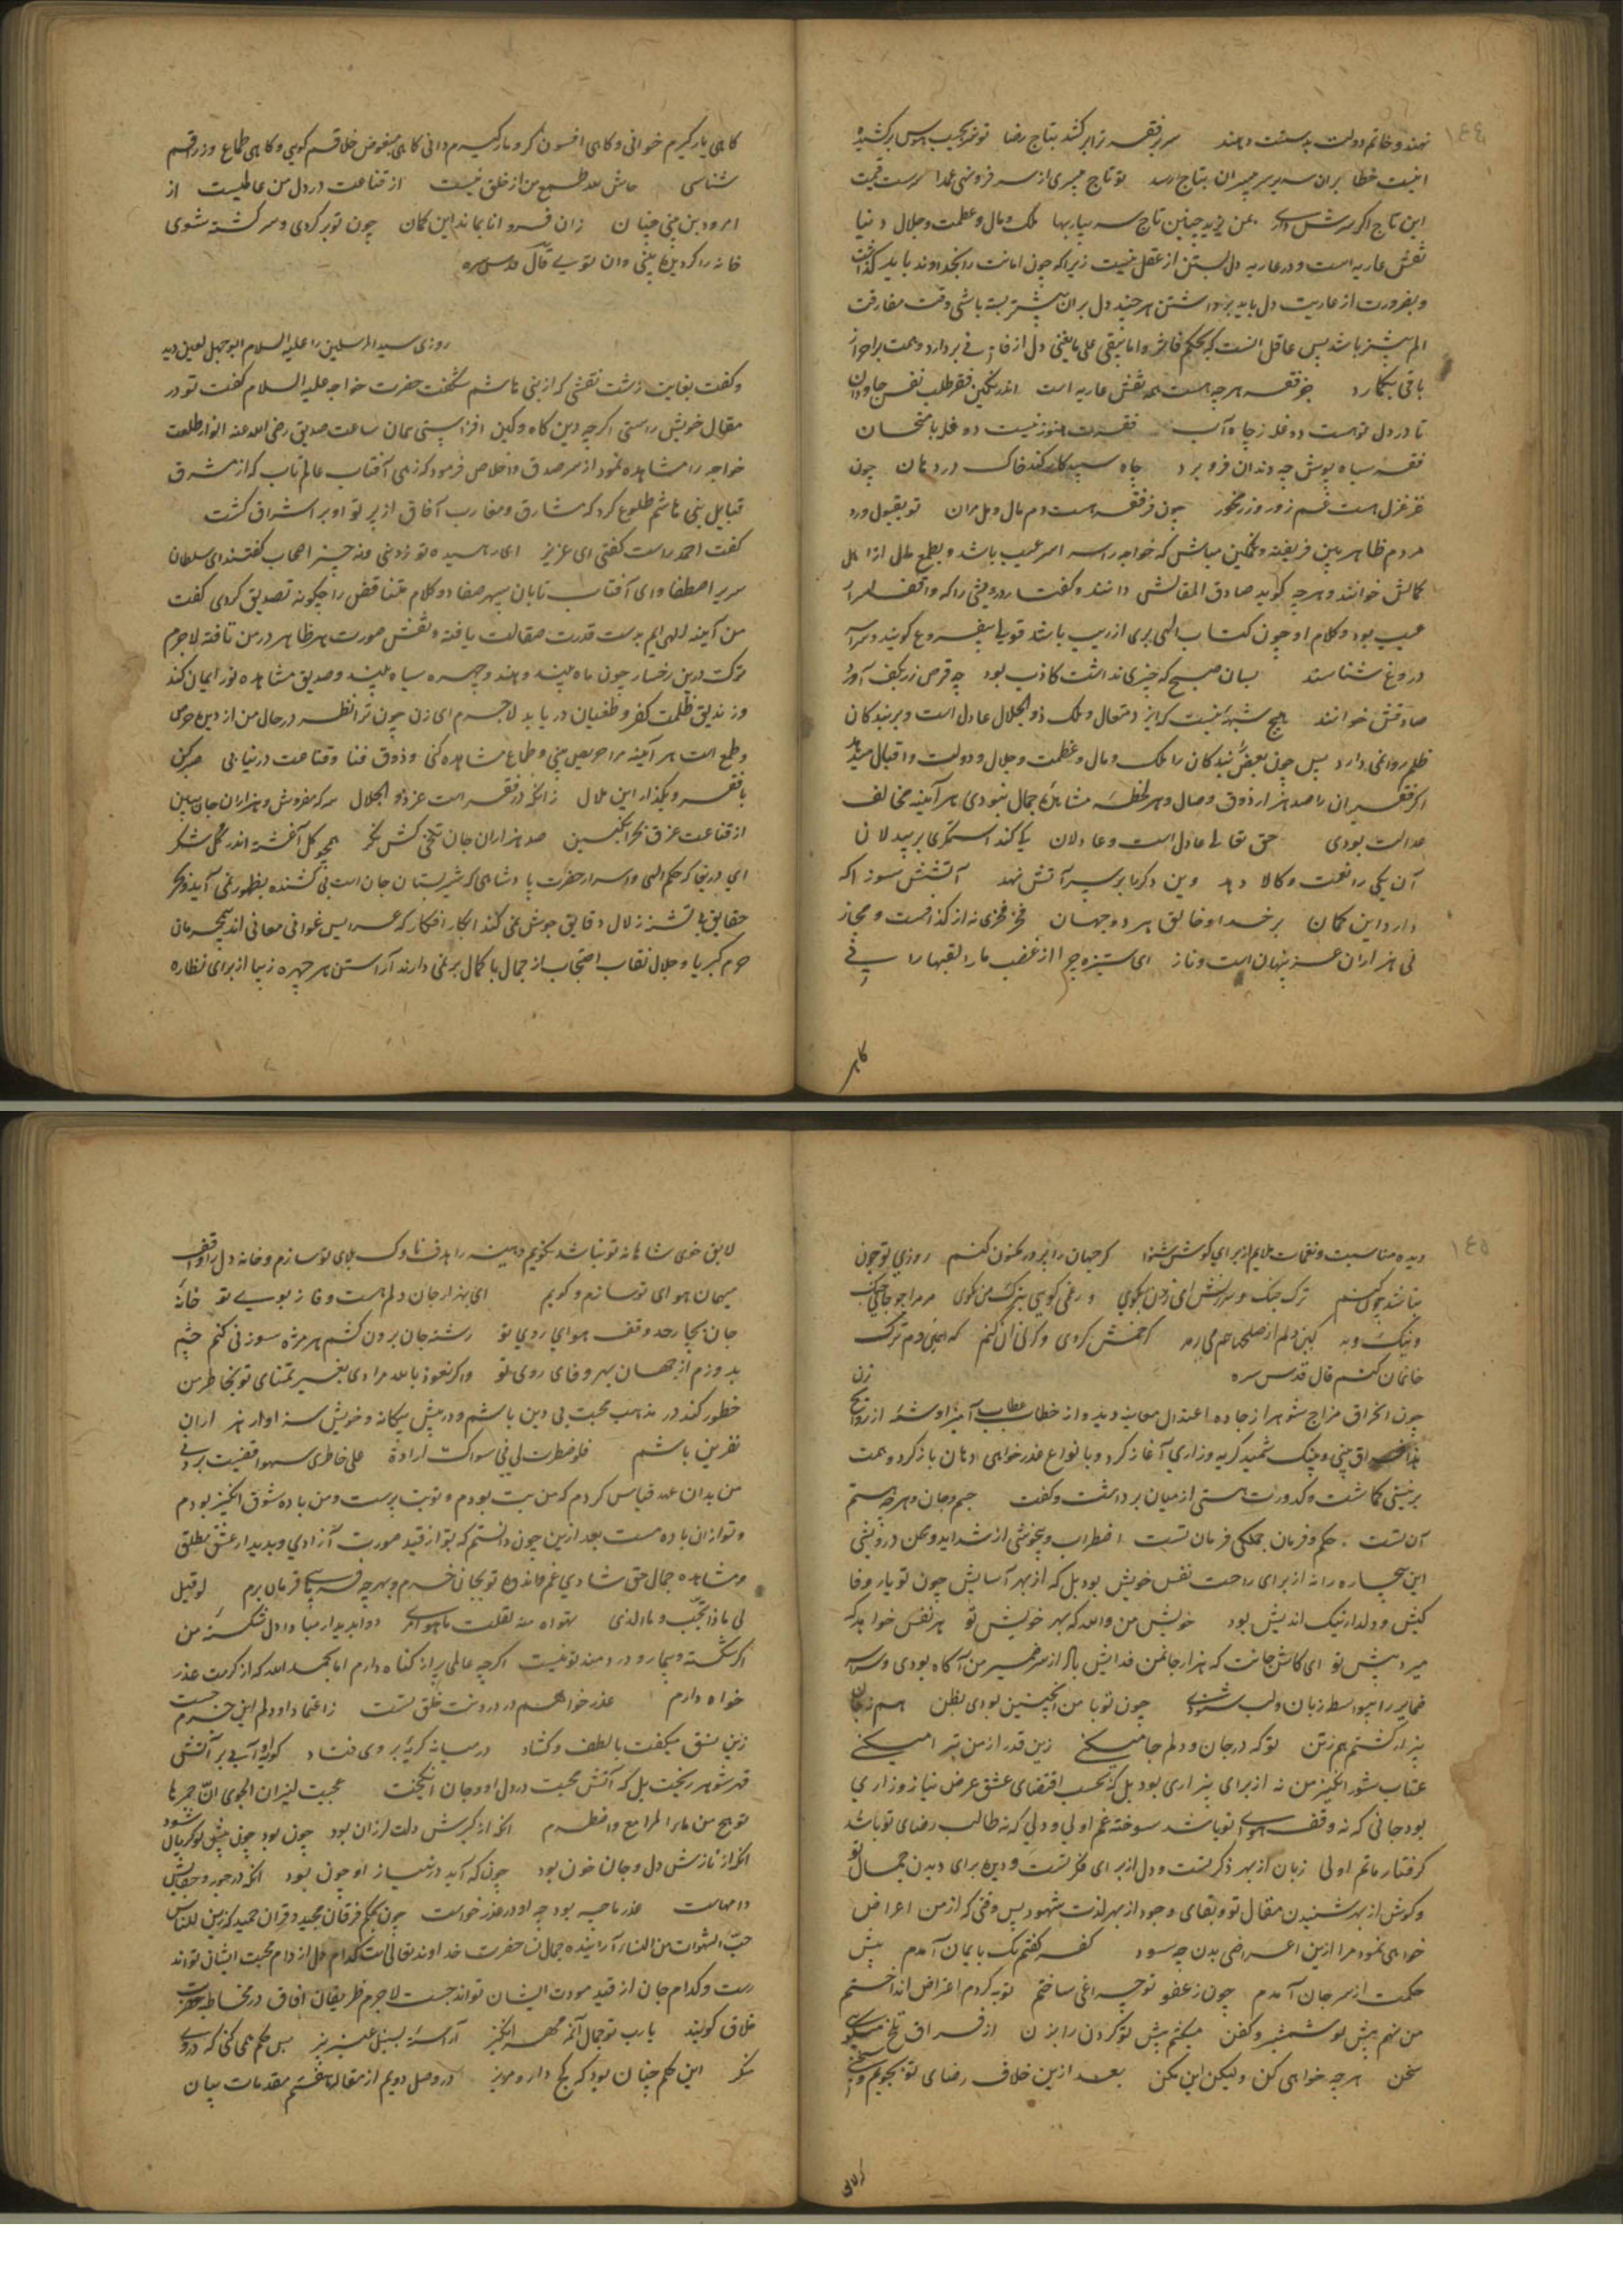 ١٤٤
نهند و خاتم دولت بدستت دهند سریر فقر ترا بر کشد بتاج رضا تو سر بجیب هوس بر کشیده
اینت خطا بران سریر میران بتاج ارسد تو تاج میری از سر فروننهی عمدا سرست قیمت
این تاج اگر سرش داری بمن یزید چنین تاج سر بیار بها ملک و مال و عظمت و جلال دنیا
نقش عاریه است و در عاریه دل بستن از عقل نیست زیرا که چون امانت را بخداوند باید گذاشت
و بضرورت از عاریت دل باید برداشتن هر چند دل بران بیشتر بسته باشی وقت مفارقت
الم بیشتر باشد پس عاقل آنست که بحکم فاثروا ما یبقی علی ما یفنی دل از فانی بردارد و همت بر احراز
باقی بگمارد جز فقر هر چه هست همه نقش عاریه است اندر نگین فقر طلب نقش جاودان
تا در دل تواست دو غله ز جاه آب فقرت هنوز نیست دو قله بامتحان
فقر سیاه پوش چو دندان فرو برد جاه سپید کار کند خاک در دهان چون
عز عزل هست غم زور و زر مخور چون فر فقر هست دم مال و مل مران تو بقبول و رد
مردم ظاهر بین فریفته و غمگین مباش که خواجه را سراسر عیب باشد و بطمع مال از اهل
کمالش خوانند و هر چه گوید صادق المقالش دانند و گفتار درویشی را که واقف اسرار
غیب بود و کلام او چون کتاب الهی بری از ریب باشد قول بیفروغ گویند و سراسر
دروغ شناسند بسان صبح که چیزی نداشت کاذب بود چو قرص زر بکف آورد
صادقش خوانند هیچ شبهه نیست که ایزد متعال و ملک ذو الجلال عادل است و بر بندگان
ظلم روا نمی دارد پس چون بعضی بندگان را ملک و مال و عظمت و جلال و دولت و اقبال میدهد
اگر فقیران را صد هزار ذوق وصال و هر لحظه مشاهده جمال نبودی هر آینه مخالف
عدالت بودی حق تعالی عادل است و عادلان کی کند استمگری بر بیدلان
آن یکی را نعمت و کالا دهد وین دگر را بر سر آتش نهد آتشش سوزد که
دارد این گمان بر خدا و خالق هر دو جهان فقر فخری نه از گزافست و مجاز
نی هزاران عز پنهان است و ناز ای ستیزه چرا از غضب ما را لقبها را نی

کاهی یار گیرم خوانی و کاهی افسون گر و مار گیرم دانی کاهی مبغوض خلاقم گویی و کاهی طماع و زراقم
شناسی حاش لله طمع من از خلق نیست از قناعت در دل من عالمیست از
امرود بن بینی چنان زان فرو آ تا بماند این گمان چون تو بر گردی و سرگشته شوی
خانه را گردنده بینی وان توئی قال قدس سره
روزی سید المرسلین را علیه السلام ابو جهل لعین دید
و گفت بغایت زشت نقشی که از بنی هاشم شگفت حضرت خواجه علیه السلام گفت تو در
مقال خویش راستی اگر چه دین کاه و کین افزاستی همان ساعت صدیق رضی الله عنه انوار طلعت
خواجه را مشاهده نمود از سر صدق و اخلاص فرمود که زهی آفتاب عالم تاب که از مشرق
قبایل بنی هاشم طلوع کرد که مشارق و مغارب آفاق از پرتو او بر اشراق گشت
گفت احمد راست گفتی ای عزیز ای رهیده تو ز دنی ونه چیز اصحاب گفتند ای سلطان
سریر اصطفا و ای آفتاب تابان سپهر صفا دو کلام متناقض را چگونه تصدیق کردی گفت
من آینه الهی ام بدست قدرت صقالت یافته و نقش صورت هر ظاهر در من تافته لاجرم
ترکت درین رخسار چون ماه بیند و هند و چهره سیاه بیند و صدیق مشاهده نور ایمان کند
و زندیق ظلمت کفر و طغیان دریابد لاجرم ای زن چون ترا نظر در حال من از دیده حرص
و طمع است هر آینه مرا حریص بینی و طماع مشاهده کنی و ذوق فنا و قناعت در نیابی صبر کن
با فقر و بگذار این ملال زانکه در فقر است عز ذو الجلال سرکه مفروش و هزاران جان ببین
از قناعت غرق بحر انگبین صد هزاران جان تلخی کش نگر همچو گل آغشته اندر گلشکر
ای دریغ که حکم الهی و اسرار حضرت پادشاهی که شیر پستان جان است بی کشنده بظهور نمی آید و بحر
حقایق بی تشنه زلال دقایق جوش نمی کند ابکار افکار که عرایس غوانی معانی اند بیمحرمان
حرم کبریا و جلال نقاب احتجاب از جمال با کمال بر نمی دارند آراستن هر چهره زیبا از برای نظاره

١٤٥
دیده مناسبت و نغمات ملایم از برای گوش شنوا گر جهان را پر در مکنون کنم روزی تو چون
نباشد چون کنم ترک جنگ و سرزنش ای زن بگوی ور نمی گویی بترک من بگوی مر مرا چه جای جنگ
و نیک و بد کین دلم از صلحها هم می رمد گر خمش کردی و گر نی آن کنم که همین دم ترک
خانمان کنم قال قدس سره زن
چون انحراق مزاج شوهر از جاده اعتدال معاینه دید و از خطاب عتاب آمیز او شمه از روایح
هذا فراق بینی و بینک شمید گریه و زاری آغاز کرد و بانواع عذر خواهی دهان باز کرد و همت
بر نیستی گماشت و کدورت هستی از میان برداشت و گفت جسم و جان و هر چه هستم
آن تست حکم و فرمان جملگی فرمان تست اضطراب و بیخویشی از شداید و محن درویشی
این بیچاره را نه از برای راحت نفس خویش بود بل که از بهر آسایش چون تو یار وفا
کیش و دلدار نیک اندیش بود خویش من والله که بهر خویش تو هر نفس خواهد که
میرد پیش تو ای کاش جانت که هزار جان من فدایش باد از سر ضمیر من آگاه بودی و سراسر
ضمایر را بیواسطه زبان و لب شنودی چون تو با من اینچنین بودی بظن هم ز جان
بیزار گشتم هم ز تن تو که در جان و دلم جا میکنی زین قدر از من تبرا میکنی
عتاب شور انگیز من نه از برای بیزاری بود بل که بحسب اقتضای عشق عرض نیاز و زاری
بود جانی که نه وقف هوای تو باشد سوخته غم اولی و دلی که نه طالب رضای تو باشد
گرفتار ماتم اولی زبان از بهر ذکر تست و دل از برای فکر تست و دیده برای دیدن جمال تو
و گوش از بهر شنیدن مقال تو و بقای وجود از بهر لذت شهود پس وقتی که از من اعراض
خواهی نمود مرا ازین اعراضی بدن چه سود کفر گفتم نک بایمان آمدم پیش
حکمت از سر جان آمدم چون ز عفو تو چراغی ساختم توبه کردم اعتراض انداختم
من نهم پیش تو شمشیر و کفن میکشم پیش تو گردن را بزن از فراق تلخ میگویی
سخن هر چه خواهی کن ولیکن این مکن بعد ازین خلاف رضای تو نجویم و سخنی

لایق خوی شاهانه تو نباشد نگویم و سینه را هدف ناوک بلای تو سازم و خانه دل را وقف
میهمان هوای تو سازم و گویم ای هزار جان و دلم مست وفا ز بوی تو خانه
جان بجا رحد وقف هوای روی تو رشته جان برون کشم هر مژه سوزنی کنم چشم
بدوزم از جهان بهر وفای روی تو و اگر نعوذ بالله مرادی بغیر تمنای تو بخاطر من
خطور کند در مذهب محبت بی دین باشم و در پیش بیگانه و خویش سزاوار هزاران
نفرین باشم فلو خطرت لی فی سواک ارادة علی خاطری سهوا قضیت بردتی
من بدان عهد قیاس کردم که من بت بودم و تو بت پرست و من باده شوق انگیز بودم
و تو از ان باده مست بعد ازین چون دانستم که تو از قید صورت آزادی و بدیدار عشق مطلق
و مشاهده جمال حق شادی غم فانده تو بجانی خرم و بهر چه فرمایی فرمان برم لو قیل
لی ماذا تحب و ما الذی تهواه منه لقلت ما هو آمر دوا بدیدار مبادا دل شکسته من
اگر شکسته و بیمار و دردمند تو نیست اگر چه عالمی پر از گناه دارم اما بحمد الله که از کرمت عذر
خواه دارم عذر خواهم در درونت خلق تست ز اعتماد او دلم این جرم جست
زین نسق میگفت با لطف و گشاد در میانه گریه بر وی فتاد گویی آبی بر آتشی
قهر شوهر ریخت بل که آتش محبت در دل او و جان انگیخت عجبت لنیران الجوی ان جمرها
توهج من ماء المدامع واضطرم آنکه از کبرش دلت لرزان بود چون بود چون پیش تو گریان شود
آنکه از نازش دل و جان خون بود چون که آید در نیاز او چون بود آنکه در جور و جفایش
دام ماست عذر ما چه بود چو او در عذر خواست چون بحکم فرقان مجید و قران حمید که زین للناس
حب الشهوات من النساء آراینده جمال نسا حضرت خداوند تعالی است کدام دل از دام محبت ایشان تواند
رست و کدام جان از قید مودت ایشان تواند جست لاجرم ظریفان آفاق در مخاطبه حضرت
خلاق گویند یا رب تو جمال آن مه مهر انگیز آراسته بسنبل عنبر بیز پس حکم همی کنی که در وی
منگر این حکم چنان بود که کج دار و مریز در وصل دویم از مقاله هفتم مقدمات بیان